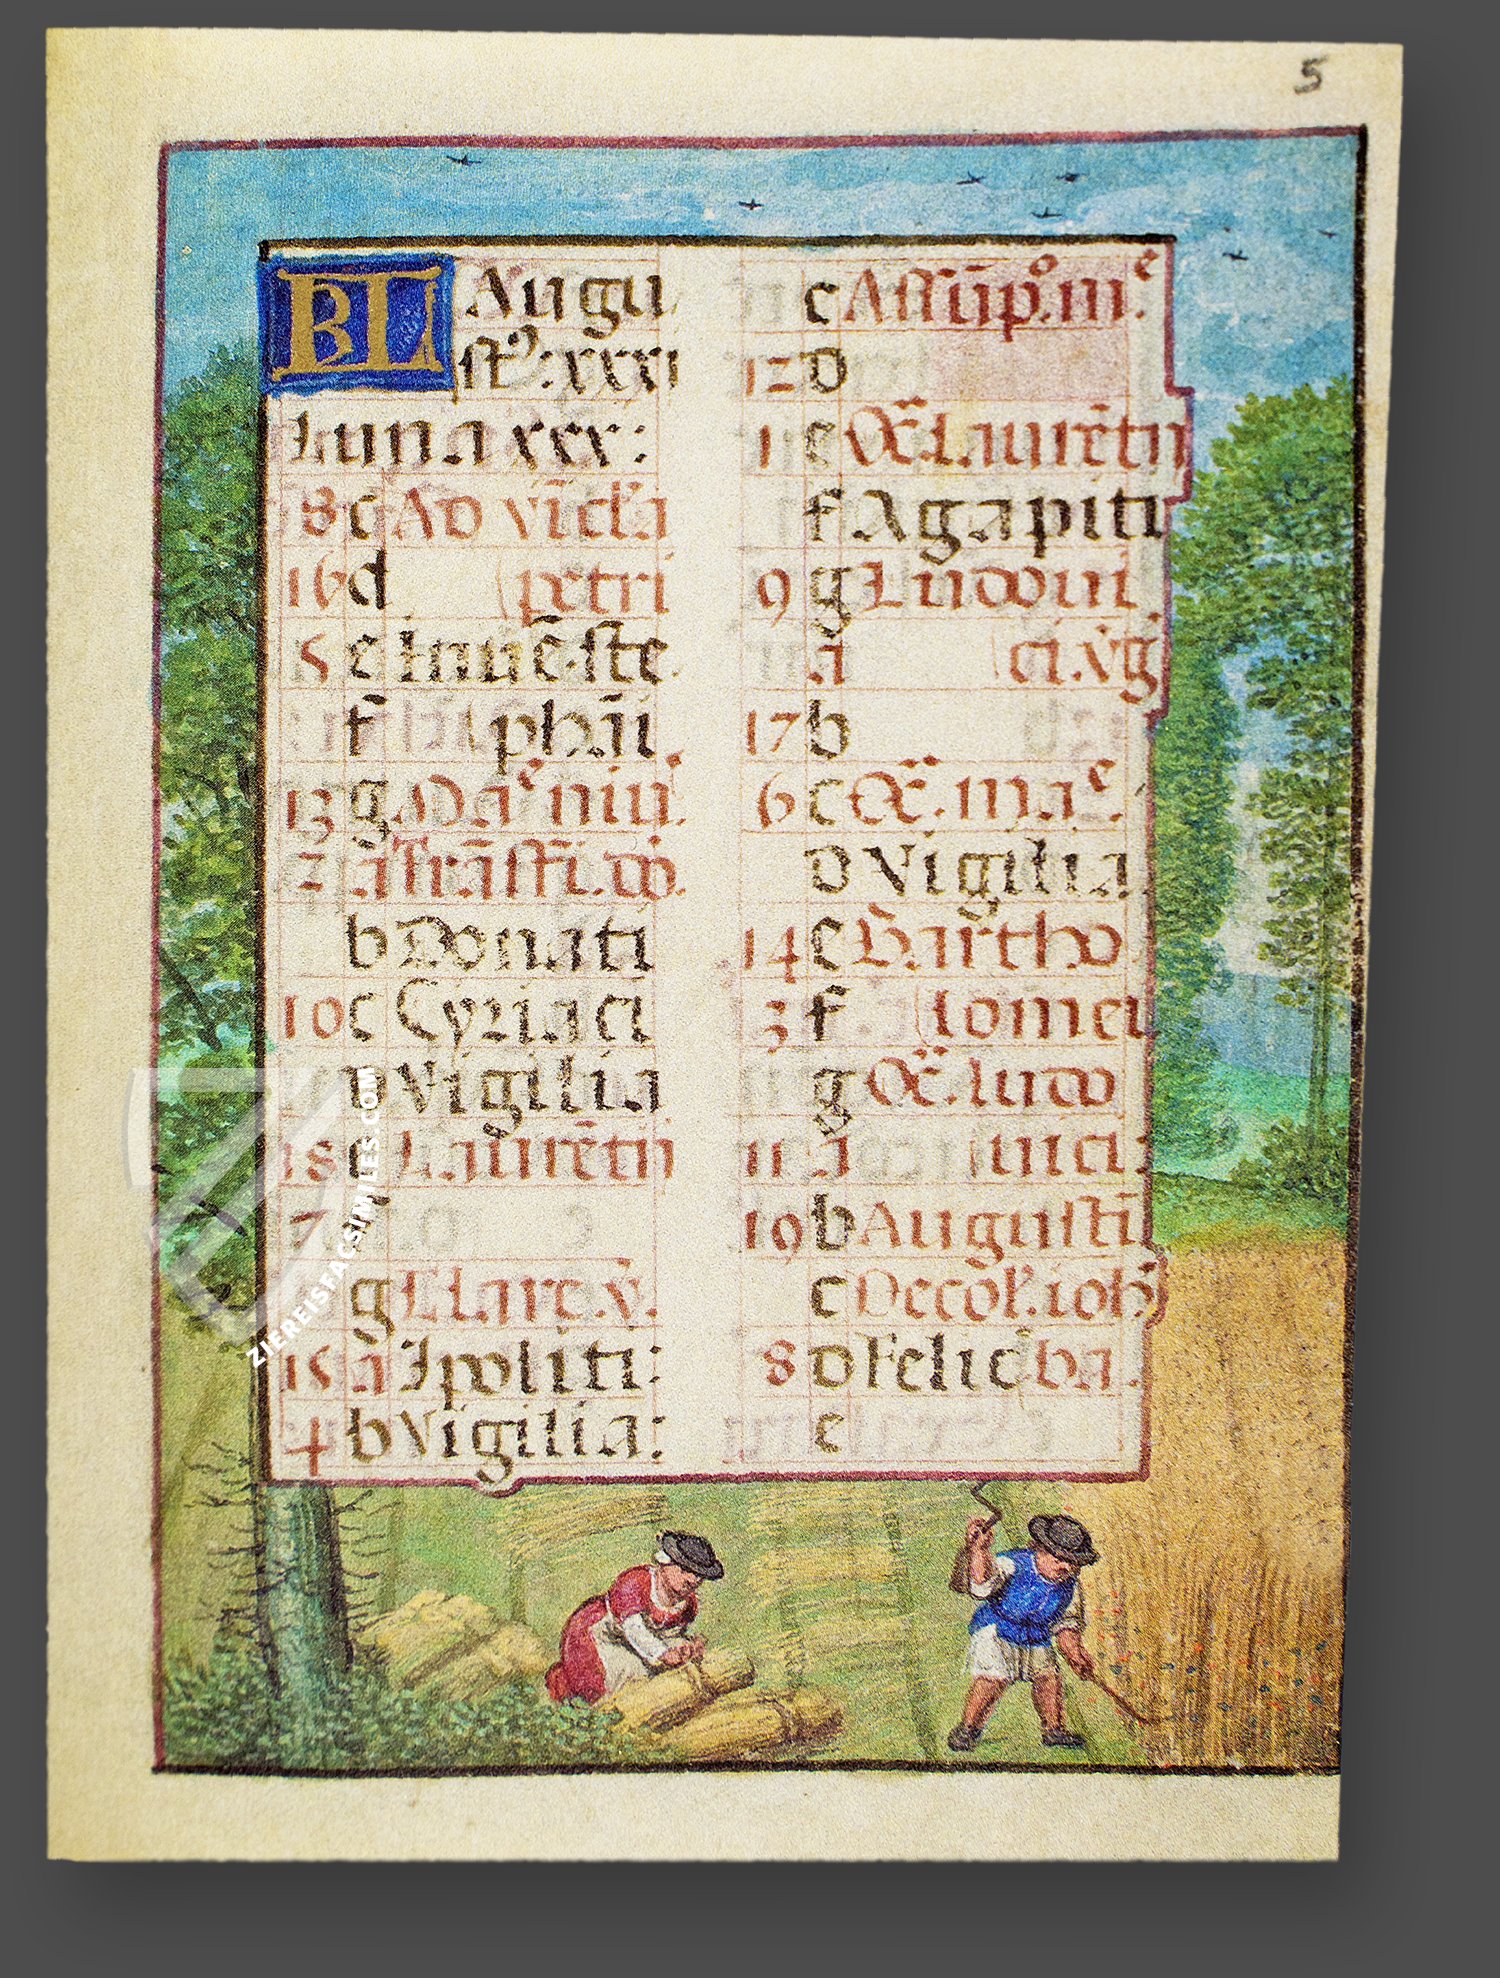 5
KL Augu
stꝰ. xxxi
Luna xxx:
8 c Ad vīcl̄a
16 d petri
5 e Inuē. ste
f phāi
13 g Dāᵉ niui.
2 a Trāsfi. dō.
b Donati
10 c Cyriaci
d Vigilia
18 e Laurētij
7
g Clare. v̄.
15 a Ipoliti:
4 b Vigilia:
c Assūp̊. mᵉ.
12 d
1 e Oc̄. Laurētij
f Agapiti
9 g Ludoui
a ci. vg̊
17 b
6 c Oc̄. maᵉ.
d Vigilia.
14 e Bartho
3 f lomei
g Oc̄. ludo
11 a uici:
19 b Augustī
c Decol̄. ioh̄
8 d Felic̄ ba.
e
ZIEREISFACSIMILES.COM